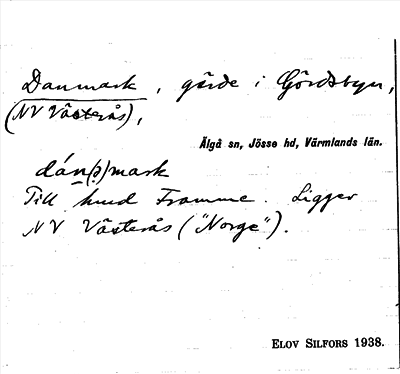 Danmark, gärde i Gördsbyn,
(NV Västerås),
Älgå sn, Jösse hd, Värmlands län.
dán(?)mark
Till hmd Framme. Ligger
NV Västerås ("Norge").
ELOV SILFORS 1938.